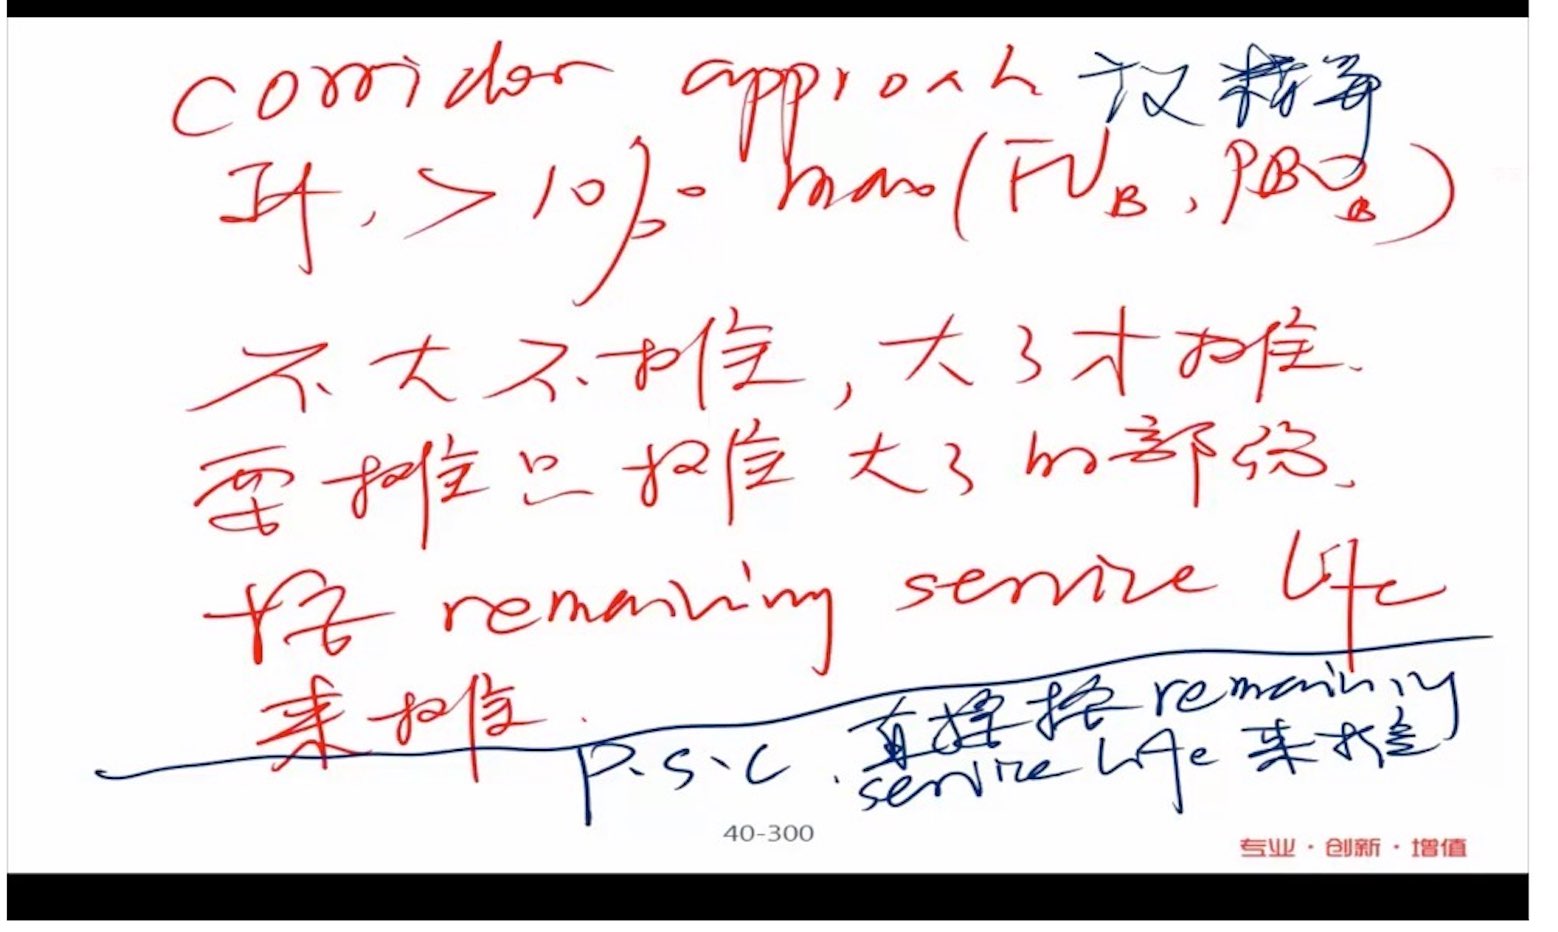 corridor approach 精算
If, > 10% max(FVB, PBOB)
不大不摊,大了才摊.
要摊只摊大了的部份.
按 remaining service life
来摊.
P.S.C. 直接按 remaining
service life 来摊
40-300
专业·创新·增值